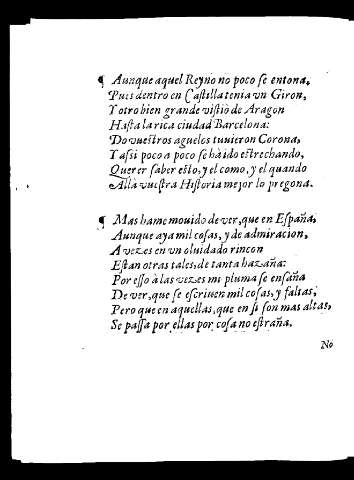 ¶ Aunque aquel Reyno no poco se entona,
Pues dentro en Castilla tenia vn Giron,
Y otro bien grande vistiò de Aragon
Hasta la rica ciudad Barcelona:
Do vuestros aguelos tuuieron Corona,
Y assi poco a poco se hà ido estrechando,
Querer saber esto, y el como, y el quando
Allà vuestra Historia mejor lo pregona.
¶ Mas hame mouido de ver, que en España,
Aunque aya mil cosas, y de admiracion,
A vezes en vn oluidado rincon
Estan otras tales, de tanta hazaña:
Por esso à las vezes mi pluma se ensaña
De ver, que se escriuen mil cosas, y faltas,
Pero que en aquellas, que en si son mas altas,
Se passa por ellas por cosa no estraña.
No